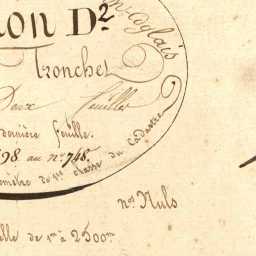 ion D.2
en Coglais
Tronchet
Deux feuilles
dernière feuille.
98 au n.º 748.
omètre de 1re classe du Cadastre
nos Nuls
elle de 1 à 2500m